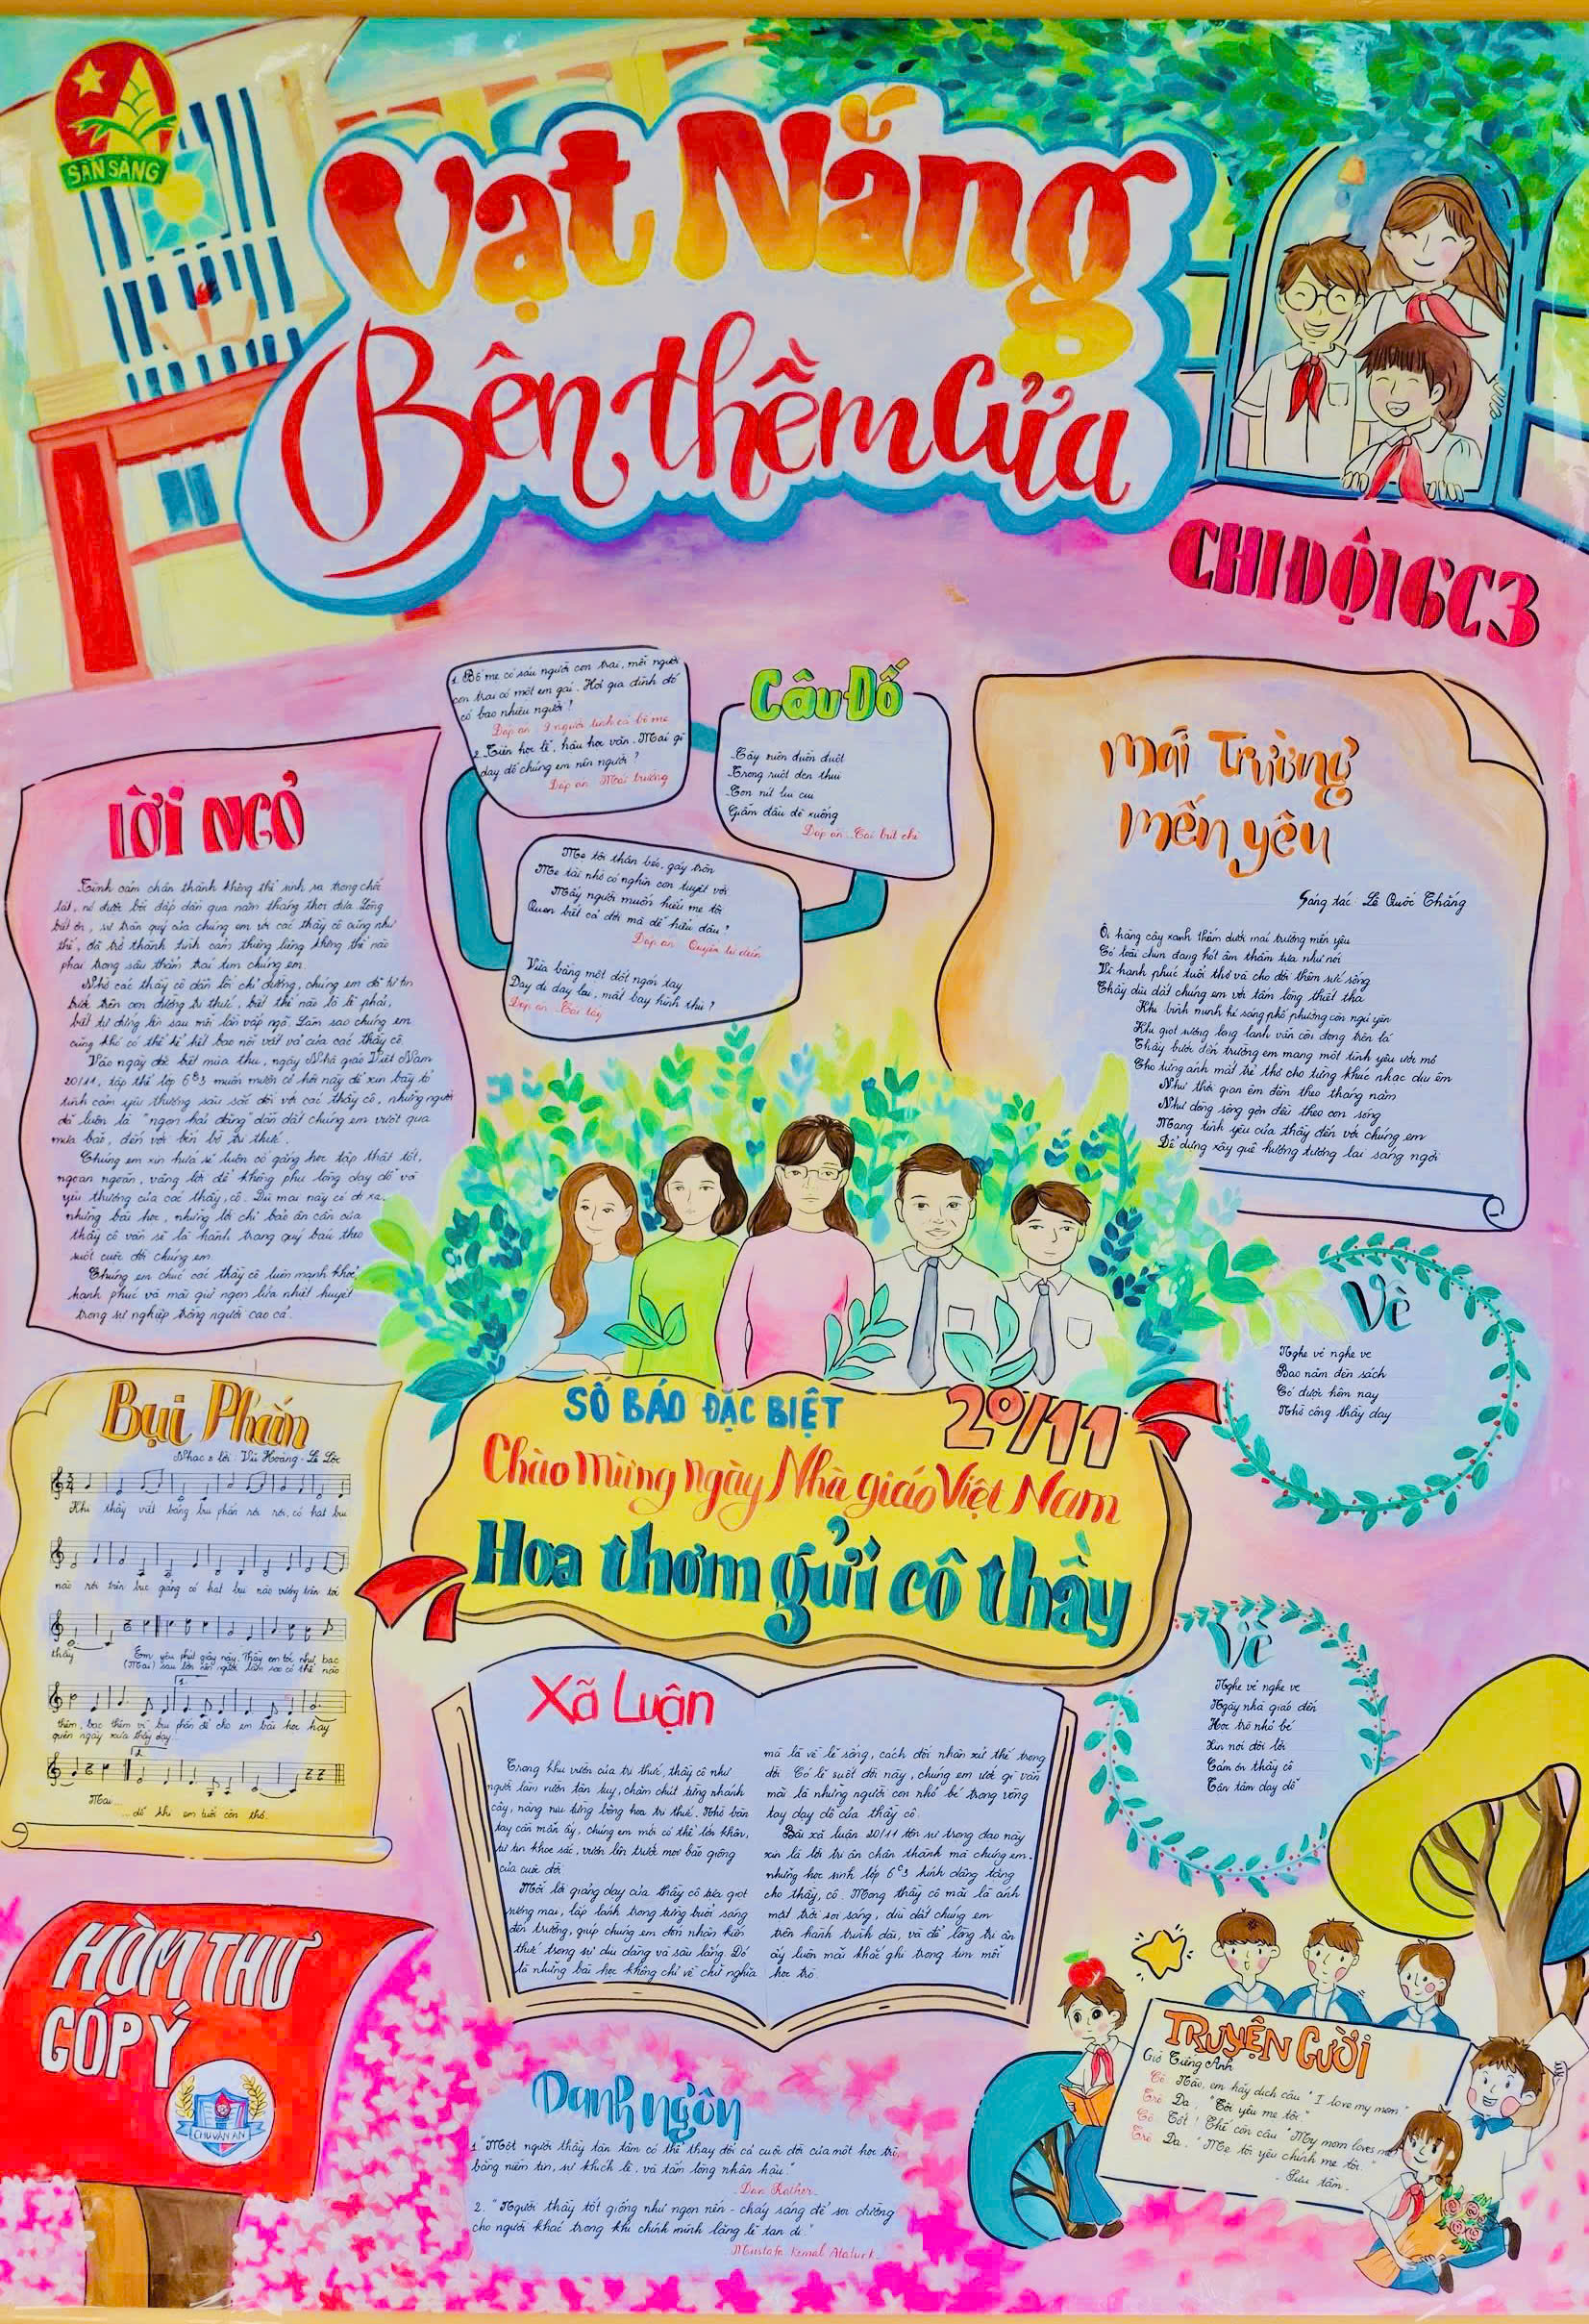 SẴN SÀNG
Vạt Nắng
Bên thềm Cửa
CHI ĐỘI 6C3
LỜI NGỎ
Tình cảm chân thành không thể sinh ra trong chốc
lát, nó được bồi đắp dần qua năm tháng thoi đưa. Lòng
biết ơn, sự trân quý của chúng em với các thầy cô cũng như
thế, đã trở thành tình cảm thiêng liêng không thể nào
phai trong sâu thẳm trái tim chúng em.
Nhờ các thầy cô dẫn lối chỉ đường, chúng em đã tự tin
bước trên con đường tri thức, biết thế nào là lẽ phải,
biết tự đứng lên sau mỗi lần vấp ngã. Làm sao chúng em
cũng khó có thể kể hết bao nỗi vất vả của các thầy cô.
Vào ngày đặc biệt mùa thu, ngày Nhà giáo Việt Nam
20/11, tập thể lớp 6C3 muốn mượn cơ hội này để xin bày tỏ
tình cảm yêu thương sâu sắc đối với các thầy cô, những người
đã luôn là "ngọn hải đăng" dẫn dắt chúng em vượt qua
mưa bão, đến với bến bờ tri thức.
Chúng em xin hứa sẽ luôn cố gắng học tập thật tốt,
ngoan ngoãn, vâng lời để không phụ lòng dạy dỗ và
yêu thương của các thầy, cô. Dù mai này có đi xa,
những bài học, những lời chỉ bảo ân cần của
thầy cô vẫn sẽ là hành trang quý báu theo
suốt cuộc đời chúng em.
Chúng em chúc các thầy cô luôn mạnh khoẻ,
hạnh phúc và mãi giữ ngọn lửa nhiệt huyết
trong sự nghiệp trồng người cao cả.
1. Bố mẹ có sáu người con trai, mỗi người
con trai có một em gái. Hỏi gia đình đó
có bao nhiêu người?
Đáp án: 9 người tính cả bố mẹ
2. Tiên học lễ, hậu học văn. Mái gì
dạy dỗ chúng em nên người?
Đáp án: Mái trường
Câu Đố
Cây niên đuồn đuột
Trong ruột đen thui
Con nít lui cui
Giẫm đầu đè xuống
Đáp án: Cái bút chì
Mẹ tôi thân béo, gáy tròn
Mẹ tài nhỏ có nghìn con tuyệt vời
Mấy người muốn hiểu mẹ tôi
Quen biết cả đời mà dễ hiểu đâu?
Đáp án: Quyển từ điển
Vừa bằng một đốt ngón tay
Day đi day lại, mất bay hình thù?
Đáp án: Cái tẩy
Mái Trường
Mến yêu
Sáng tác: Lê Quốc Thắng
Ôi hàng cây xanh thắm dưới mái trường mến yêu
Có loài chim đang hót âm thầm tựa như nói
Vì hạnh phúc tuổi thơ và cho đời thêm sức sống
Thầy dìu dắt chúng em với tấm lòng thiết tha
Khi bình minh hé sáng phố phường còn ngủ yên
Khi giọt sương long lanh vẫn còn đọng trên lá
Thầy bước đến trường em mang một tình yêu ước mơ
Cho từng ánh mắt trẻ thơ cho từng khúc nhạc dịu êm
Như thời gian êm đềm theo tháng năm
Như dòng sông gợn đều theo con sóng
Mang tình yêu của thầy đến với chúng em
Để dựng xây quê hương tương lai sáng ngời
SỐ BÁO ĐẶC BIỆT
20/11
Chào mừng ngày Nhà giáo Việt Nam
Hoa thơm gửi cô thầy
Vè
Nghe vẻ nghe ve
Bao năm đèn sách
Có được hôm nay
Nhờ công thầy dạy
Vè
Nghe vẻ nghe ve
Ngày nhà giáo đến
Học trò nhỏ bé
Xin nói đôi lời
Cảm ơn thầy cô
Tận tâm dạy dỗ
Bụi Phấn
Nhạc & lời: Vũ Hoàng - Lê Lộc
Khi thầy viết bảng bụi phấn rơi rơi, có hạt bụi
nào rơi trên bục giảng có hạt bụi nào vương trên tóc
thầy Em yêu phút giây này. Thầy em tóc như bạc
(Mai) sau lớn nên người làm sao có thể nào
1.
thêm, bạc thêm vì bụi phấn để cho em bài học hay
quên ngày xưa thầy dạy
2.
Mai
dỗ khi em tuổi còn thơ.
Xã Luận
Trong khu vườn của tri thức, thầy cô như
người làm vườn tận tụy, chăm chút từng nhánh
cây, nâng niu từng bông hoa tri thức. Nhờ bàn
tay cần mẫn ấy, chúng em mới có thể lớn khôn,
tự tin khoe sắc, vươn lên trước mọi bão giông
của cuộc đời.
Mỗi lời giảng dạy của thầy cô tựa giọt
sương mai, lấp lánh trong từng buổi sáng
đến trường, giúp chúng em đón nhận kiến
thức trong sự dịu dàng và sâu lắng. Đó
là những bài học không chỉ về chữ nghĩa
mà là về lẽ sống, cách đối nhân xử thế trong
đời. Có lẽ suốt đời này, chúng em ước gì vẫn
mãi là những người con nhỏ bé trong vòng
tay dạy dỗ của thầy cô.
Bài xã luận 20/11 tôn sư trọng đạo này
xin là lời tri ân chân thành mà chúng em,
những học sinh lớp 6C3 kính dâng tặng
cho thầy, cô. Mong thầy cô mãi là ánh
mặt trời soi sáng, dìu dắt chúng em
trên hành trình dài, và để lòng tri ân
ấy luôn mãi khắc ghi trong tim mỗi
học trò.
HÒM THƯ
GÓP Ý
CHU VĂN AN
Danh ngôn
1. "Một người thầy tận tâm có thể thay đổi cả cuộc đời của một học trò,
bằng niềm tin, sự khích lệ, và tấm lòng nhân hậu."
Dan Rather
2. "Người thầy tốt giống như ngọn nến - cháy sáng để soi đường
cho người khác trong khi chính mình lặng lẽ tan đi."
Mustafa Kemal Ataturk
TRUYỆN CƯỜI
Giờ Tiếng Anh
Cô: Nào, em hãy dịch câu "I love my mom"
Trò: Dạ. "Tôi yêu mẹ tôi."
Cô: Tốt! Thế còn câu "My mom loves me"
Trò: Dạ. "Mẹ tôi yêu chính mẹ tôi."
- Sưu tầm -